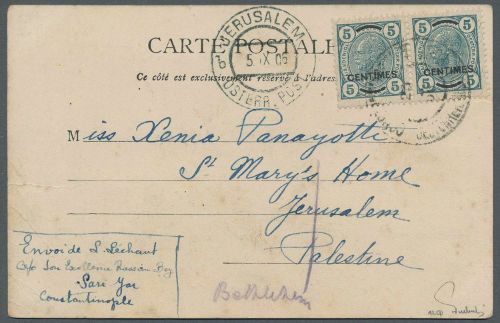 CARTE POSTALE
Ce côté est exclusivement réservé à l'adres
JERUSALEM
5.IX 06
OSTERR. POST
5 5
CENTIMES
5 5
5 5
CENTIMES
5 5
Miss Xenia Panayotti
St Mary's Home
Jerusalem
Palestine
Bethlehem
Envoi de L. Léchaut
Son Excellence Hassan Bey
Sari Yar
Constantinople